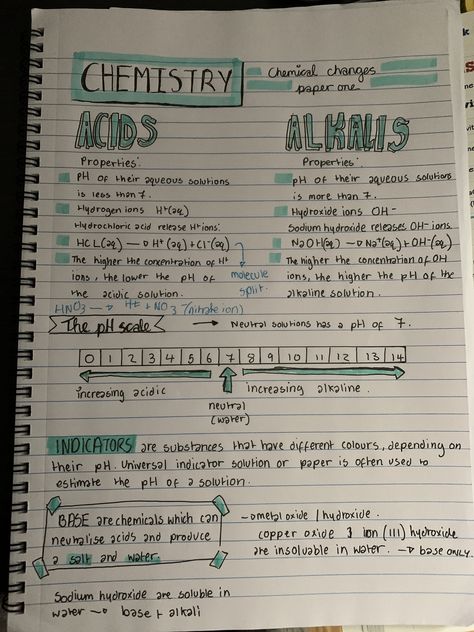 CHEMISTRY
Chemical changes
paper one.
ACIDS
Properties:
pH of their aqueous solutions
is less than 7.
Hydrogen ions H+(aq)
Hydrochloric acid release H+ions.
HCL(aq) → H+(aq)+Cl-(aq)
The higher the concentration of H+
ions, the lower the pH of
the acidic solution.
molecule
split.
HNO3 → H+ + NO3-(nitrate ion)
ALKALIS
Properties:
pH of their aqueous solutions
is more than 7.
Hydroxide ions OH-
Sodium hydroxide releases OH- ions.
NaOH(aq) → Na+(aq)+OH-(aq)
The higher the concentration of OH
ions, the higher the pH of the
alkaline solution.
The pH scale → Neutral solutions has a pH of 7.
0 1 2 3 4 5 6 7 8 9 10 11 12 13 14
increasing acidic increasing alkaline.
neutral
(water)
INDICATORS are substances that have different colours, depending on
their pH. Universal indicator solution or paper is often used to
estimate the pH of a solution.
BASE are chemicals which can
neutralise acids and produce
a salt and water.
→ metal oxide / hydroxide.
copper oxide & ion (III) hydroxide
are insoluable in water. → base ONLY
Sodium hydroxide are soluble in
water → base + alkali